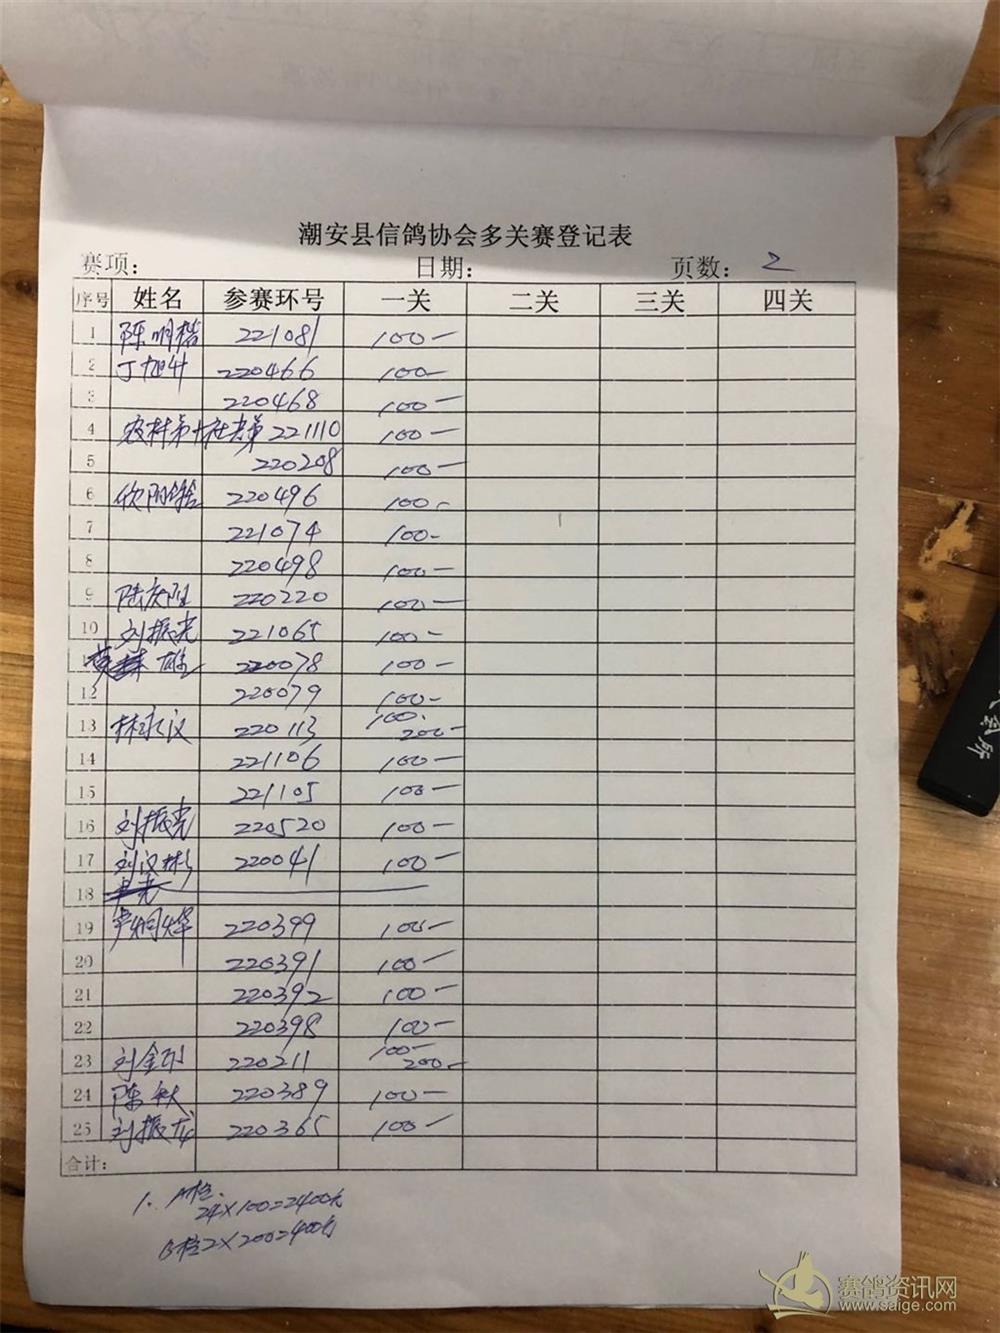 潮安县信鸽协会多关赛登记表
赛项: 日期: 页数: 2
序号 姓名 参赛环号 一关 二关 三关 四关
1 陈明楷 221081 100-
2 丁旭升 220466 100-
3 220468 100-
4 农村第十 221110 100-
5 220208 100-
6 220496 100-
7 221074 100-
8 220498 100-
9 陆庆 220220 100-
10 刘振光 221065 100-
11 雄 220078 100-
12 220079 100-
13 林永汉 220113 100- 200-
14 221106 100-
15 221105 100-
16 刘振光 220520 100-
17 刘汉彬 220041 100-
18
19 220399 100-
20 220391 100-
21 220392 100-
22 220398 100-
23 刘金 220211 100- 200-
24 陈 220389 100-
25 刘振龙 220365 100-
合计:
1. A栏
24×100=2400元
B栏2×200=400元
会所
赛鸽资讯网
www.saige.com